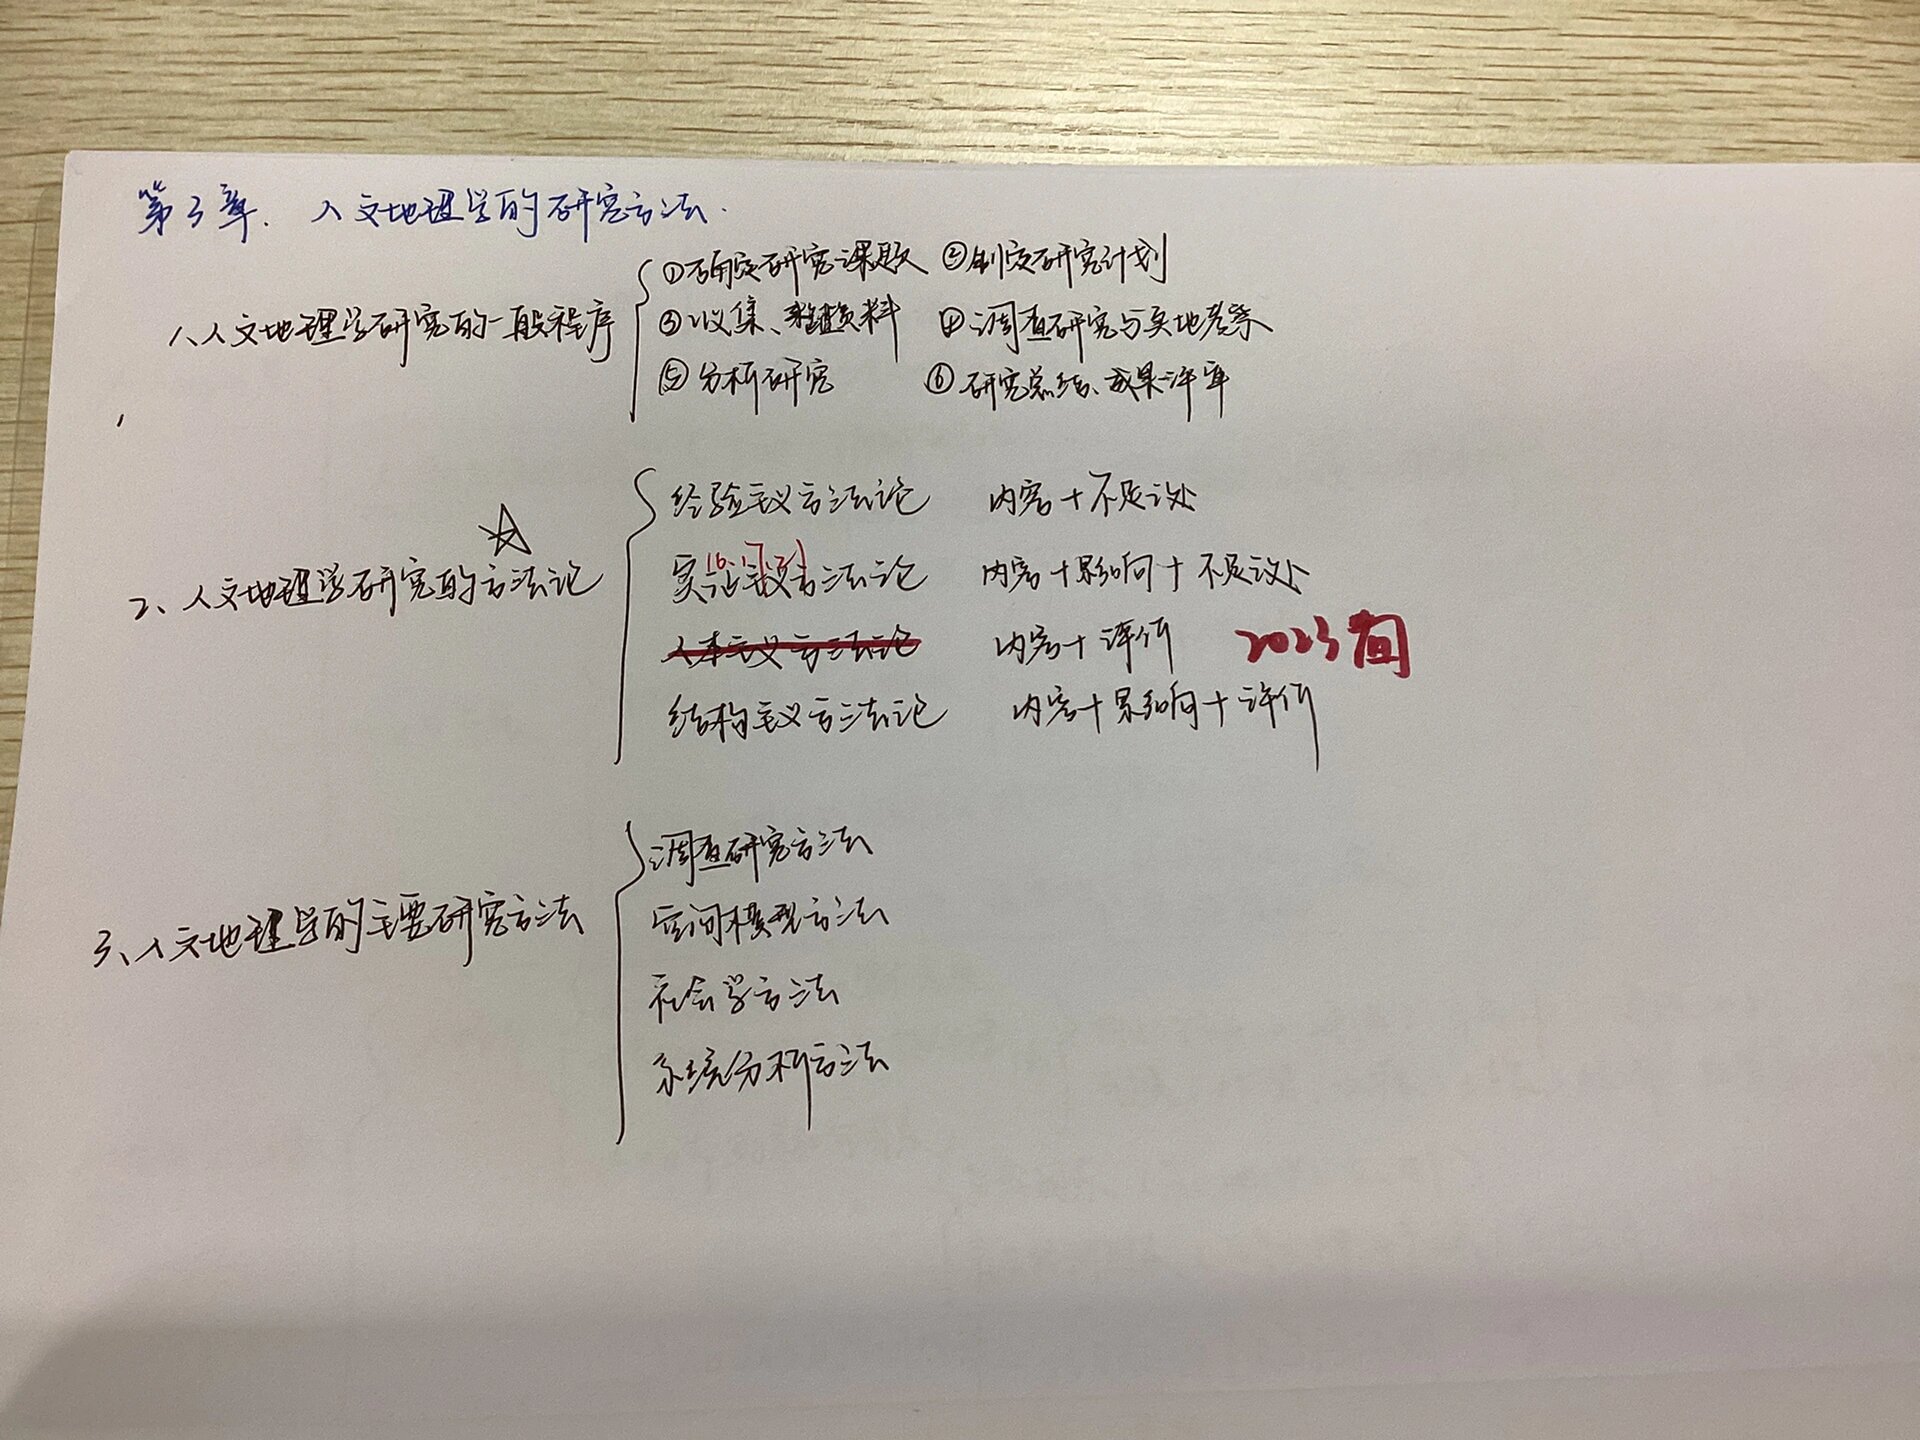 第3章. 人文地理学的研究方法.
1、人文地理学研究的一般程序
①确定研究课题 ②制定研究计划
③收集、整理资料 ④调查研究与实地考察
⑤分析研究 ⑥研究总结、成果评审
2、人文地理学研究的方法论
经验主义方法论 内容+不足之处
实证主义方法论 内容+影响+不足之处
人本主义方法论 内容+评价 2023简
结构主义方法论 内容+影响+评价
3、人文地理学的主要研究方法
调查研究方法
空间模型方法
社会学方法
系统分析方法